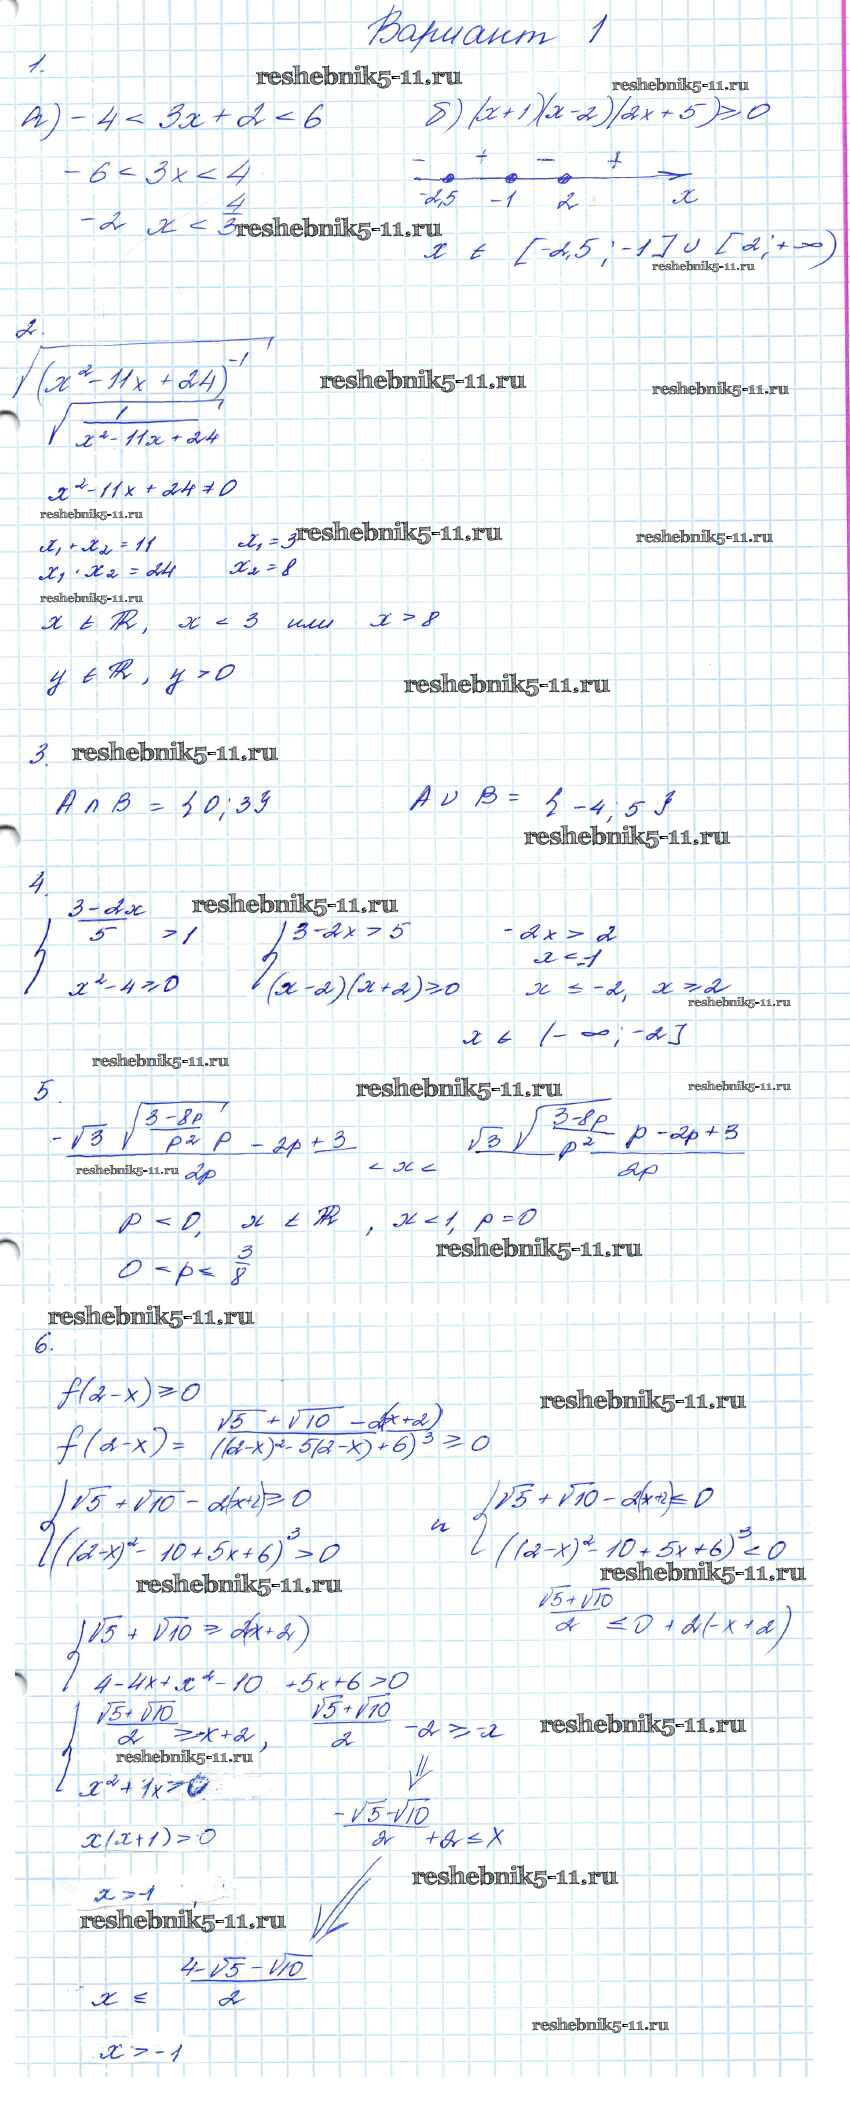 Вариант 1
1.
reshebnik5-11.ru
reshebnik5-11.ru
а) -4 < 3x + 2 < 6
б) (x+1)(x-2)(2x+5) ≥ 0
-6 < 3x < 4
- + - +
-2,5 -1 2 x
-2 x < 4/3
reshebnik5-11.ru
x ∈ [-2,5; -1] ∪ [2; +∞)
reshebnik5-11.ru
2.
√(x²-11x+24)⁻¹
reshebnik5-11.ru
reshebnik5-11.ru
√1/(x²-11x+24)
x²-11x+24≠0
reshebnik5-11.ru
x₁+x₂=11 x₁=3
reshebnik5-11.ru
reshebnik5-11.ru
x₁·x₂=24 x₂=8
reshebnik5-11.ru
x ∈ R, x < 3 или x > 8
y ∈ R, y > 0
reshebnik5-11.ru
3. reshebnik5-11.ru
A ∩ B = {0; 3} A ∪ B = {-4; 5}
reshebnik5-11.ru
4.
reshebnik5-11.ru
{ (3-2x)/5 > 1 { 3-2x > 5 -2x > 2
x < -1
x²-4 ≥ 0 (x-2)(x+2) ≥ 0 x ≤ -2, x ≥ 2
reshebnik5-11.ru
x ∈ (-∞; -2]
reshebnik5-11.ru
5.
reshebnik5-11.ru
reshebnik5-11.ru
(-√3 √((3-8p)/p²) p - 2p + 3)/2p < x < (√3 √((3-8p)/p²) p - 2p + 3)/2p
reshebnik5-11.ru
p < 0, x ∈ R, x < 1, p = 0
reshebnik5-11.ru
0 < p ≤ 3/8
reshebnik5-11.ru
6.
f(2-x) ≥ 0
reshebnik5-11.ru
f(2-x) = (√5 + √10 - 2(-x+2))/((2-x)² - 5(2-x) + 6)³ ≥ 0
{ √5 + √10 - 2(-x+2) ≥ 0 и { √5 + √10 - 2(-x+2) ≤ 0
((2-x)² - 10 + 5x + 6)³ > 0 ((2-x)² - 10 + 5x + 6)³ < 0
reshebnik5-11.ru
reshebnik5-11.ru
(√5+√10)/2 ≤ 0 + 2(-x+2)
{ √5 + √10 ≥ 2(-x+2)
4-4x+x²-10 +5x+6>0
{ (√5+√10)/2 ≥ -x+2, (√5+√10)/2 -2 ≥ -x
reshebnik5-11.ru
reshebnik5-11.ru
x²+1x>0
⇓
x(x+1)>0
(-√5-√10)/2 +2 ≤ x
reshebnik5-11.ru
x > -1
reshebnik5-11.ru
x ≤ (4-√5-√10)/2
reshebnik5-11.ru
x > -1